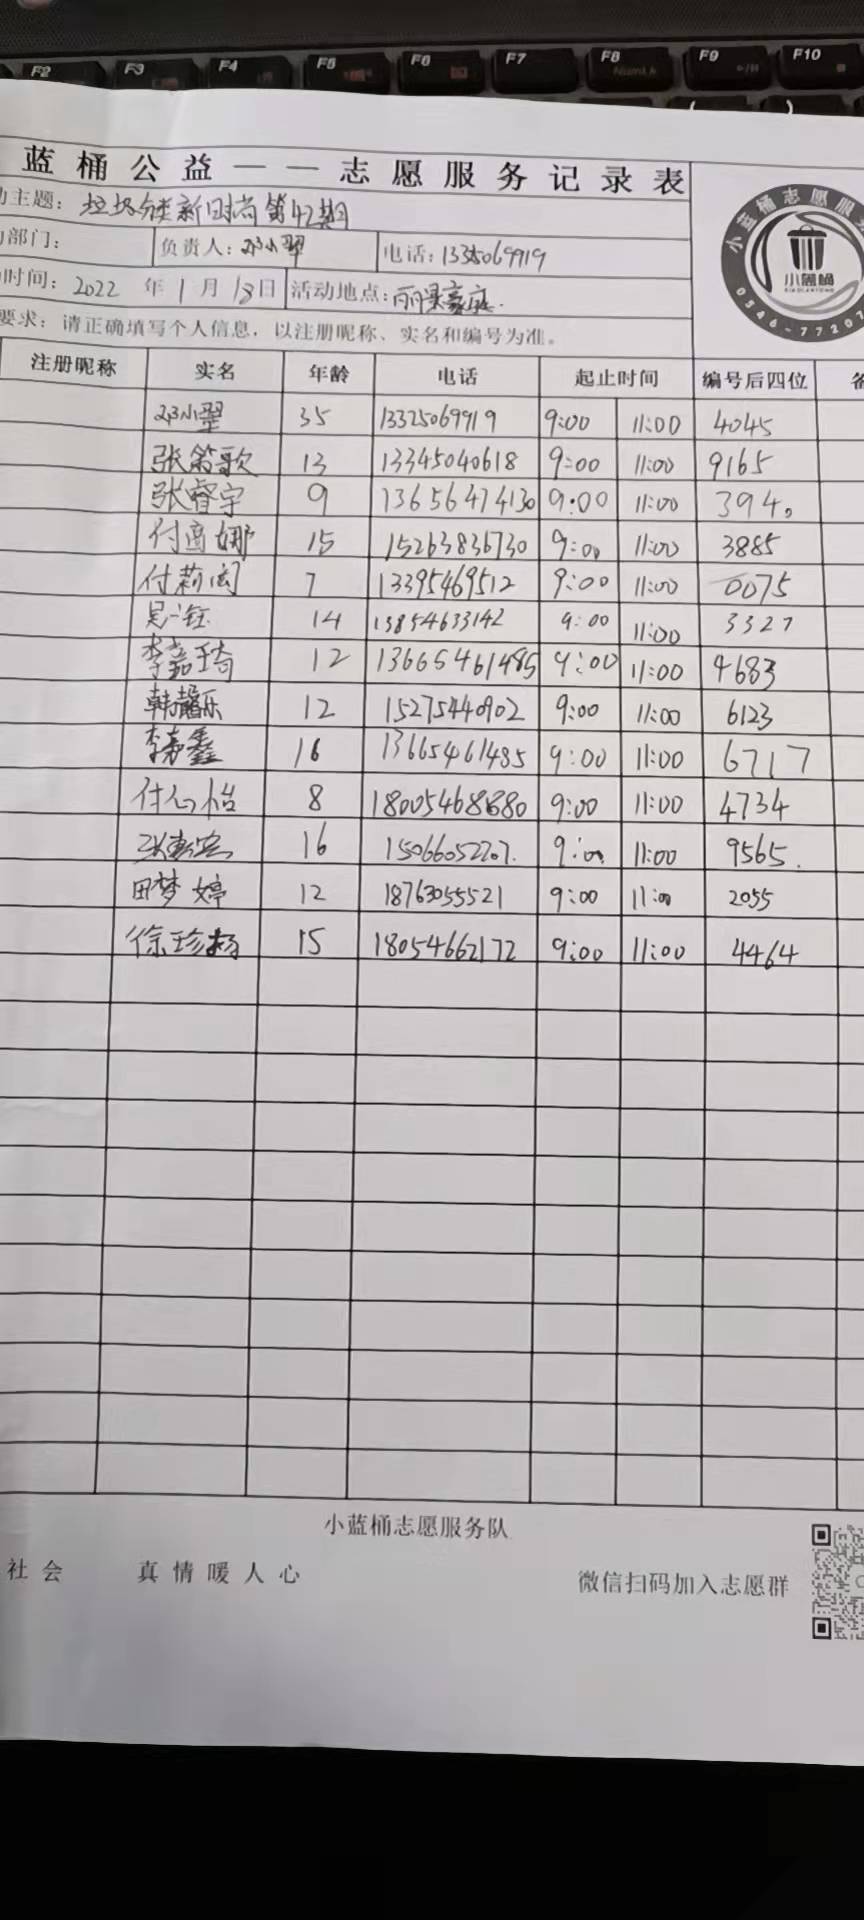 F2 F3 F4 F5 F6 F7 F8 F9 F10
NumLk
蓝桶公益——志愿服务记录表
小蓝桶志愿服务
小蓝桶
XIAOLANTONG
0546-77207
主题：垃圾分类新时尚第42期
部门： 负责人：邓小翠 电话：13325069919
时间：2022年1月18日 活动地点：丽景豪庭.
要求：请正确填写个人信息，以注册昵称、实名和编号为准。
注册昵称 实名 年龄 电话 起止时间 编号后四位 备
邓小翠 35 13325069919 9:00 11:00 4045
张笛歌 13 13345040618 9:00 11:00 9165
张睿宇 9 13656474130 9:00 11:00 3940
付 娜 15 15263836730 9:00 11:00 3885
付莉 7 13395469512 9:00 11:00 0075
吴一钰 14 13854633142 9:00 11:00 3327
李嘉琦 12 13665461485 9:00 11:00 4683
韩馨乐 12 15275440902 9:00 11:00 6123
李嘉鑫 16 13665461485 9:00 11:00 6717
付心怡 8 9:00 11:00 4734
张 16 15066052207. 9:00 11:00 9565.
田梦婷 12 18763055521 9:00 11:00 2055
徐珍杨 15 18054662172 9:00 11:00 4464
小蓝桶志愿服务队
社会 真情暖人心 微信扫码加入志愿群